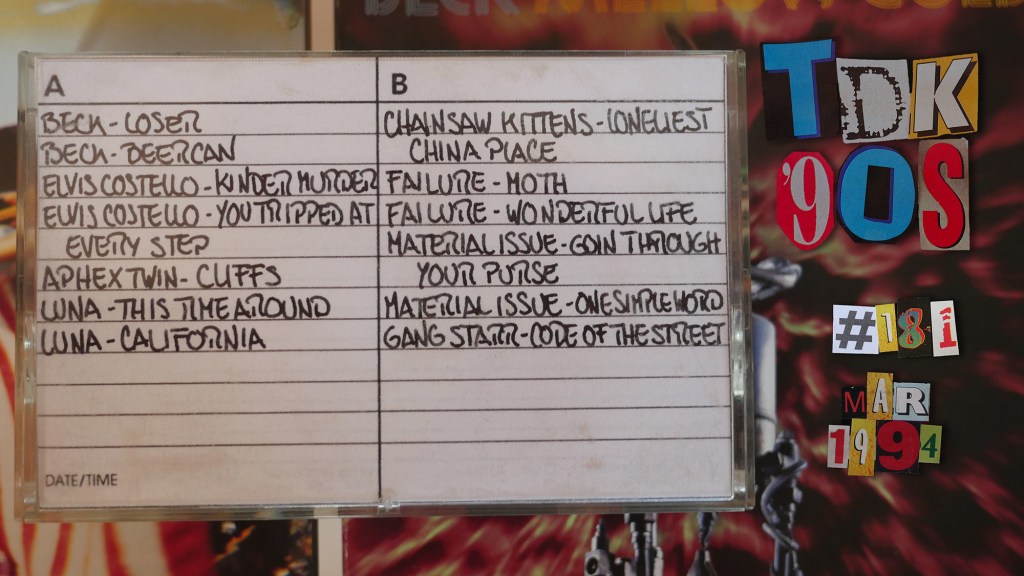 BECK MELLOW GOLD
A
BECK - LOSER
BECK - BEERCAN
ELVIS COSTELLO - KINDER MURDER
ELVIS COSTELLO - YOU TRIPPED AT
EVERY STEP
APHEX TWIN - CLIFFS
LUNA - THIS TIME AROUND
LUNA - CALIFORNIA
DATE/TIME
B
CHAINSAW KITTENS - LONELIEST
CHINA PLACE
FAILURE - MOTH
FAILURE - WONDERFUL LIFE
MATERIAL ISSUE - GOIN THROUGH
YOUR PURSE
MATERIAL ISSUE - ONE SIMPLE WORD
GANG STARR - CODE OF THE STREET
TDK
'90S
#181
MAR
1994